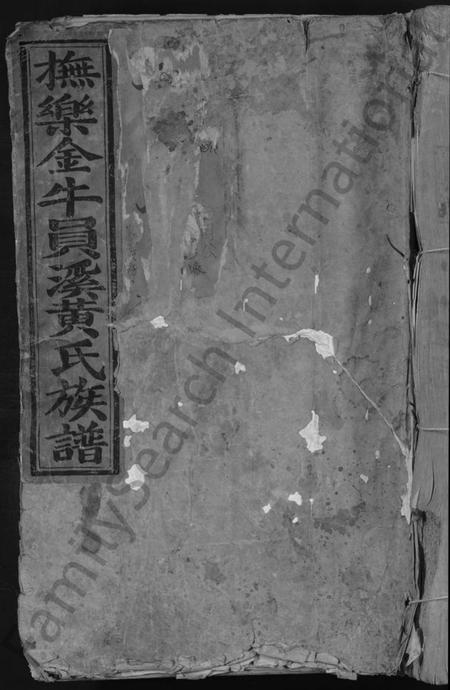 撫樂金牛員溪黃氏族譜
FamilySearch International